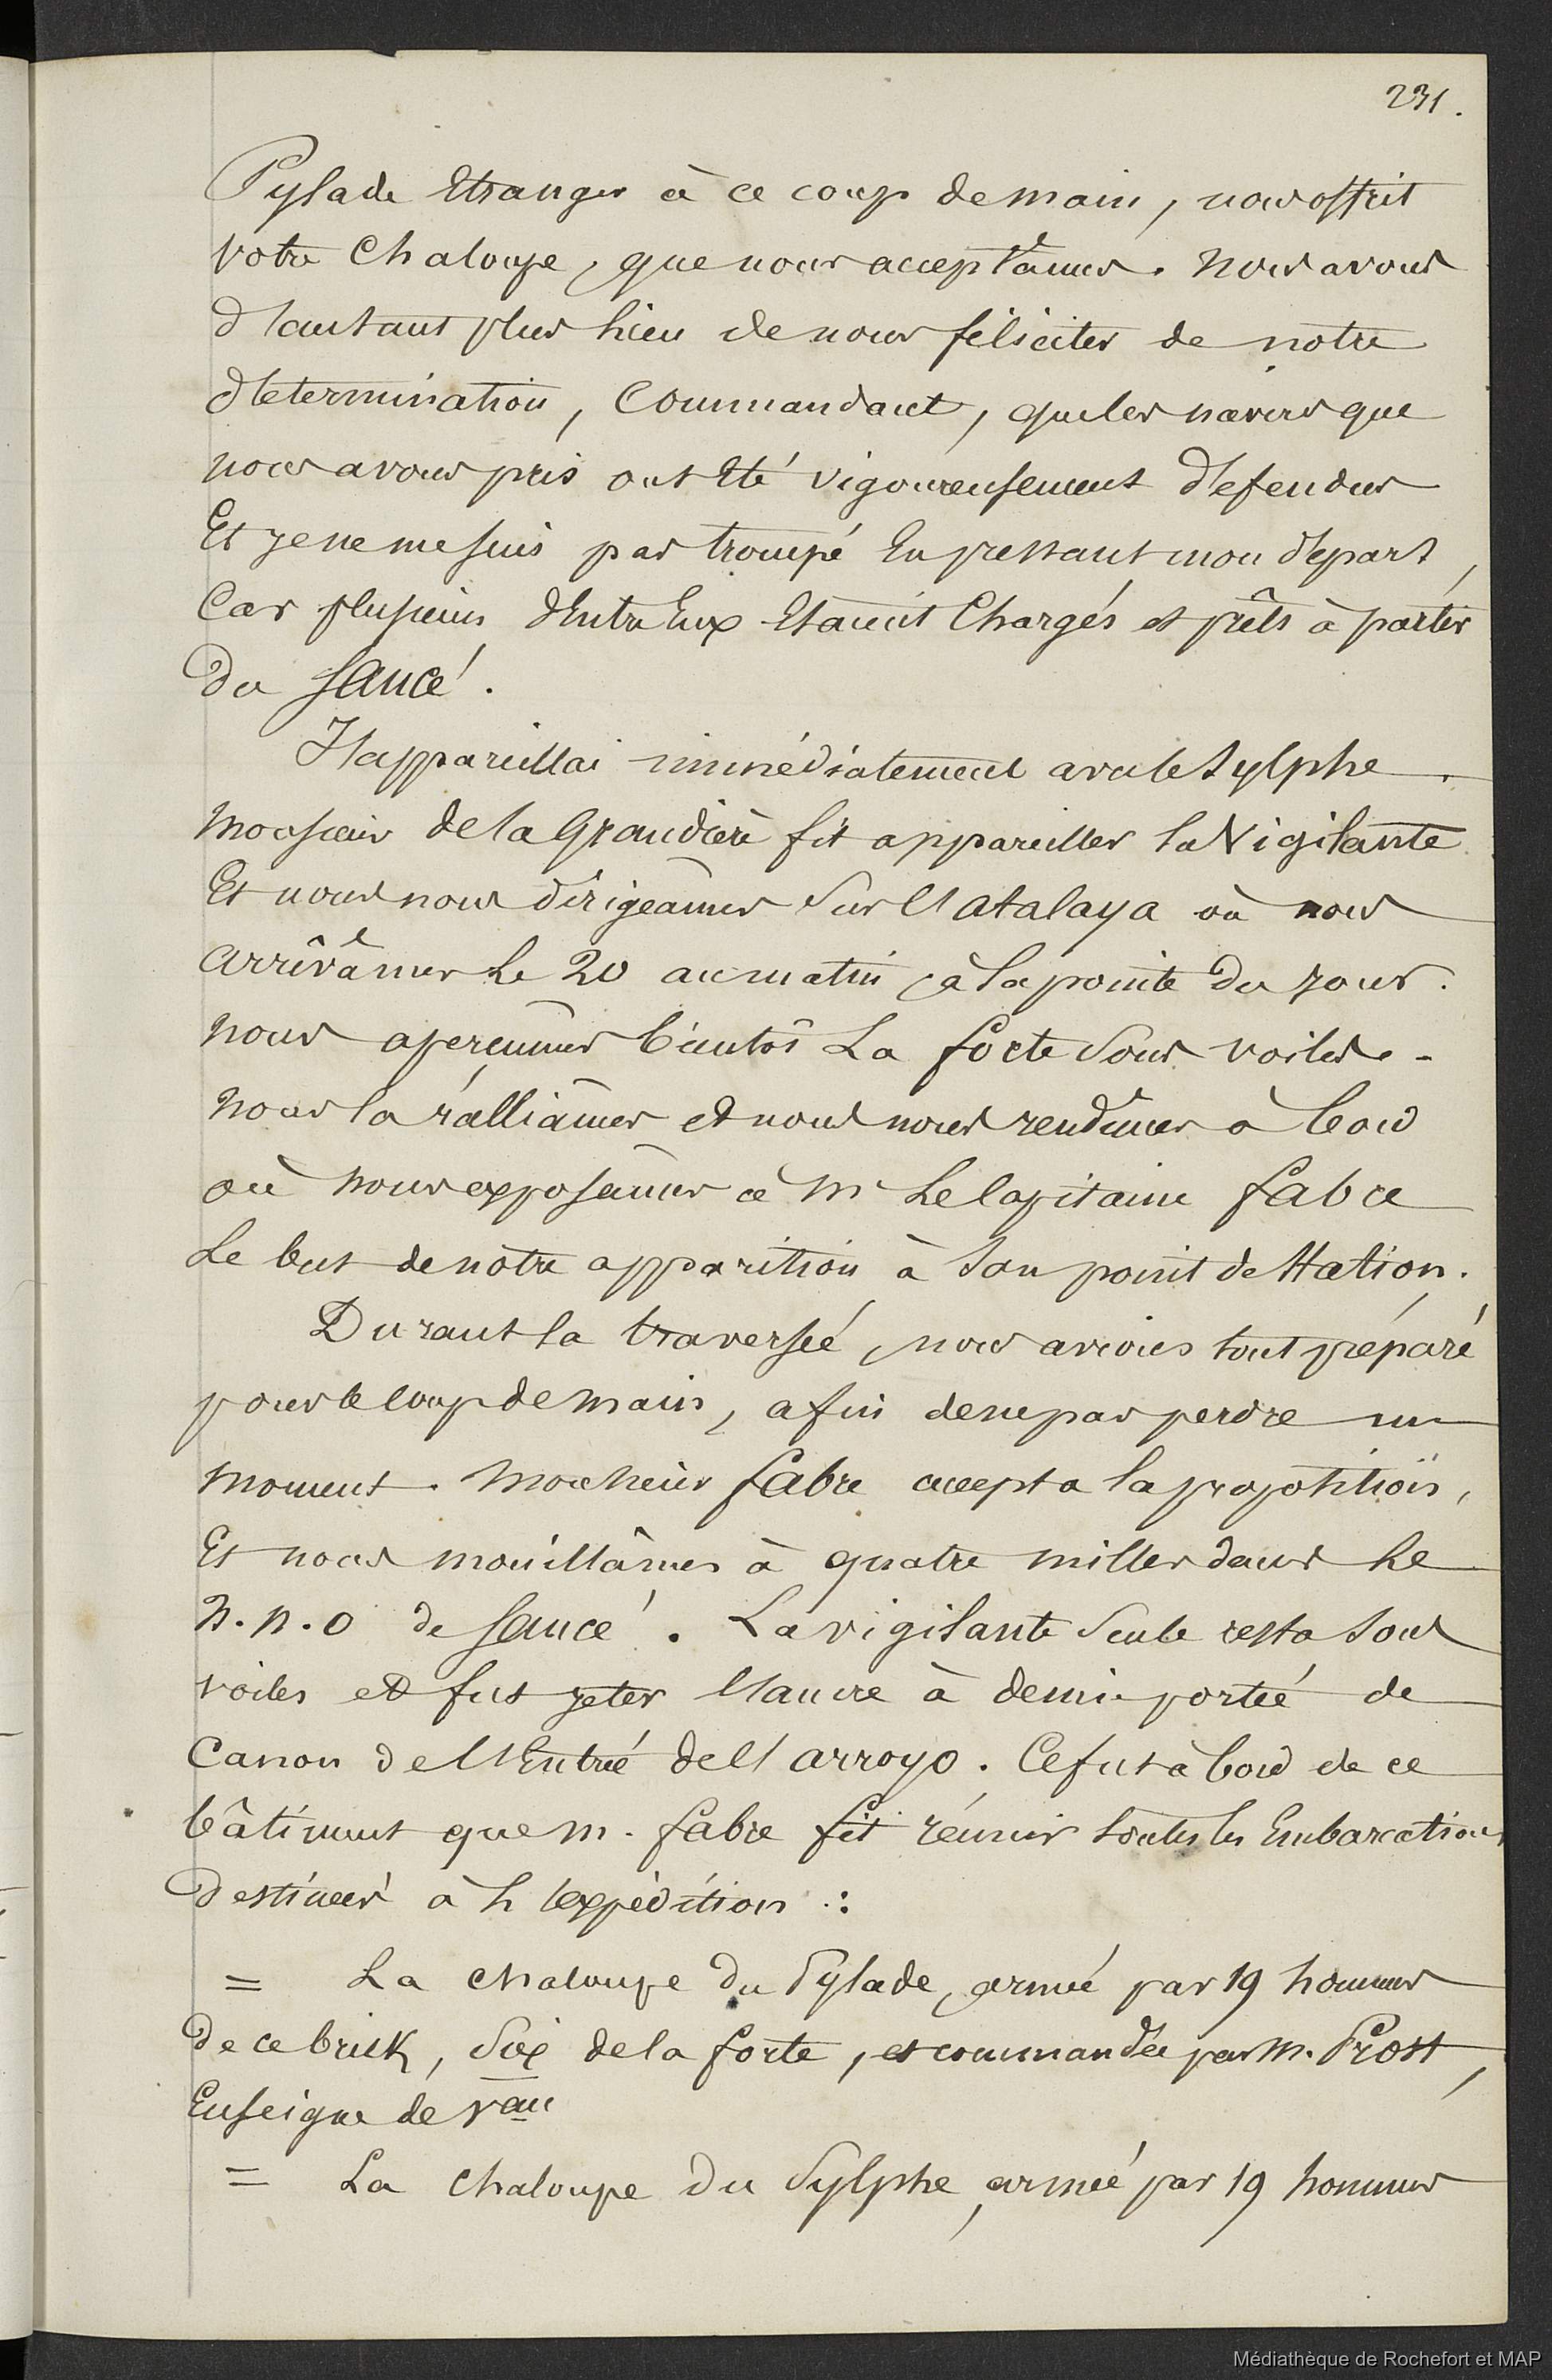 231.
Pylade Etranger à ce coup de main, nous offrit
votre Chaloupe, que nous acceptâmes. Nous avons
d'autant plus lieu de nous féliciter de notre
détermination, Commandant, que les navires que
nous avons pris ont Eté vigoureusement défendus
Et je ne me suis pas trompé En pressant mon départ,
Car plusieurs d'Entre Eux Etaient Chargés et prêts à partir
du Saucé.
J'appareillai immédiatement avec le Sylphe.
Monsieur de la Grandière fit appareiller la Vigilante
Et nous nous dirigeâmes sur l'atalaya où nous
arrivâmes Le 20 au matin, à la pointe du jour.
Nous aperçumes bientôt La forte sous voiles.-
Nous la ralliâmes et nous nous rendîmes à bord
où nous exposâmes à Mr Le Capitaine fabre
Le but de notre apparition à son point de station.
Durant la traversée, nous avions tout préparé
pour le Coup de Main, afin de ne pas perdre un
moment. Monsieur fabre accepta la proposition,
Et nous mouillâmes à quatre milles dans Le
N.N.O de Saucé. La vigilante seule resta sous
voiles et fut jeter l'ancre à demi-portée de
Canon de l'Entrée de l'arroyo. Ce fut à bord de ce
bâtiment que M. fabre fit réunir toutes les Embarcations
destinées à L'expédition :
= La chaloupe du Pylade, armée par 19 hommes
de ce brick, six de la forte, et commandée par M. Prost,
Enseigne de Vau
= La chaloupe du Sylphe, armée par 19 hommes
Médiathèque de Rochefort et MAP